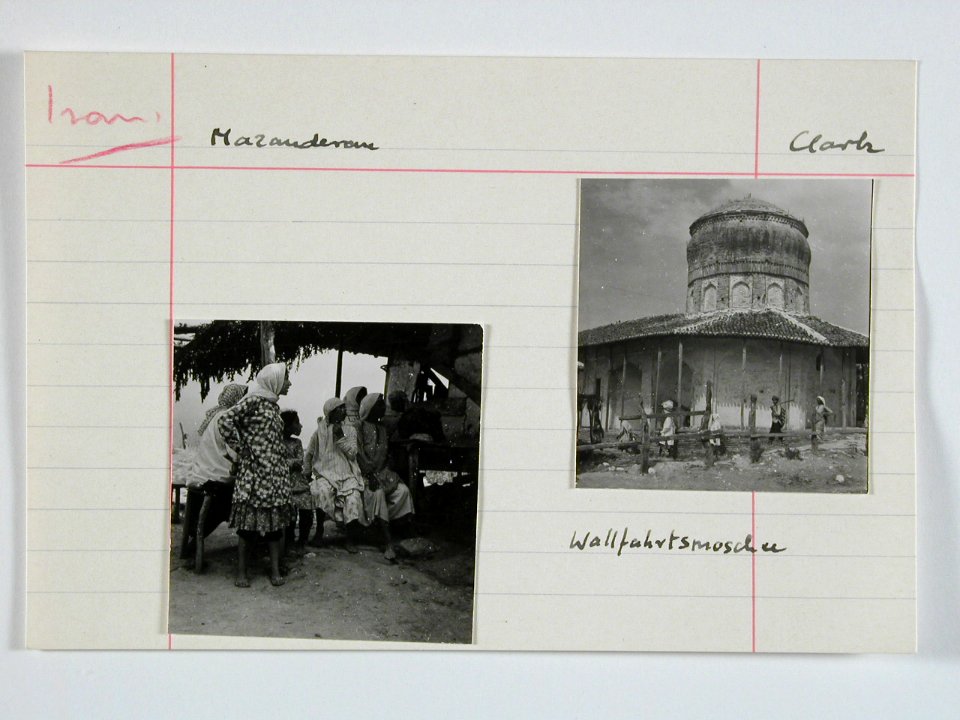 Iran.
Mazanderan
Clark
Wallfahrtsmoschee